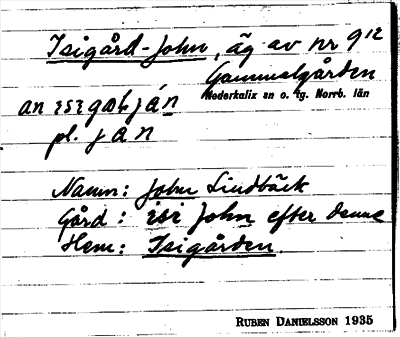 Isigård-John, äg av nr 9¹²
Gammelgården
Nederkalix sn o. tg. Norrb. län
an
pl. j a n
Namn: John Lindbäck
Gård: isi John efter denne
Hem: Isigården.
RUBEN DANIELSSON 1935